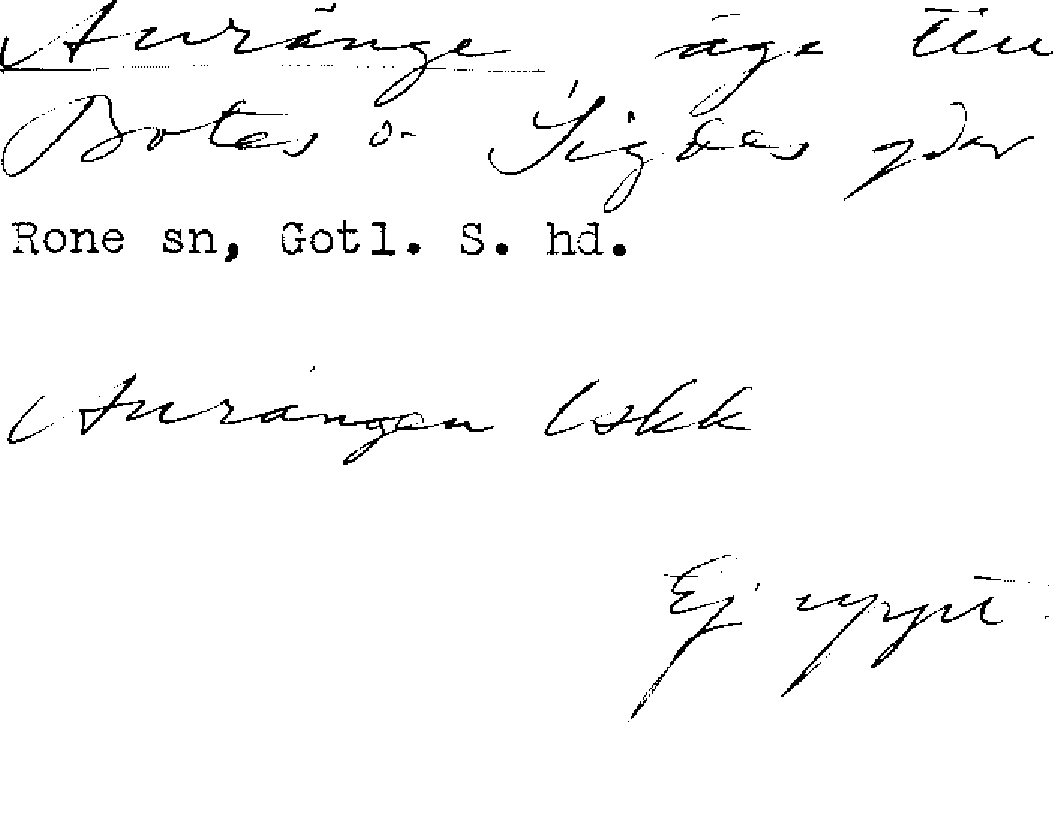 Auränge äga till
Botes o Sigdes gdar
Rone sn, Gotl. S. hd.
Aurängen Lskk
Ej uppt.